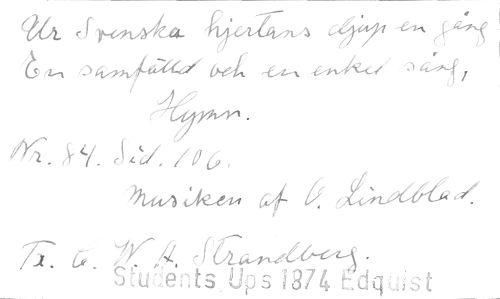 Ur Svenska hjertans djup en gång
En samfälld och en enkel sång,
Hymn.
Nr. 84. Sid. 106.
Musiken af O. Lindblad.
Tx. C. W. A. Strandberg.
Students Ups 1874 Edquist